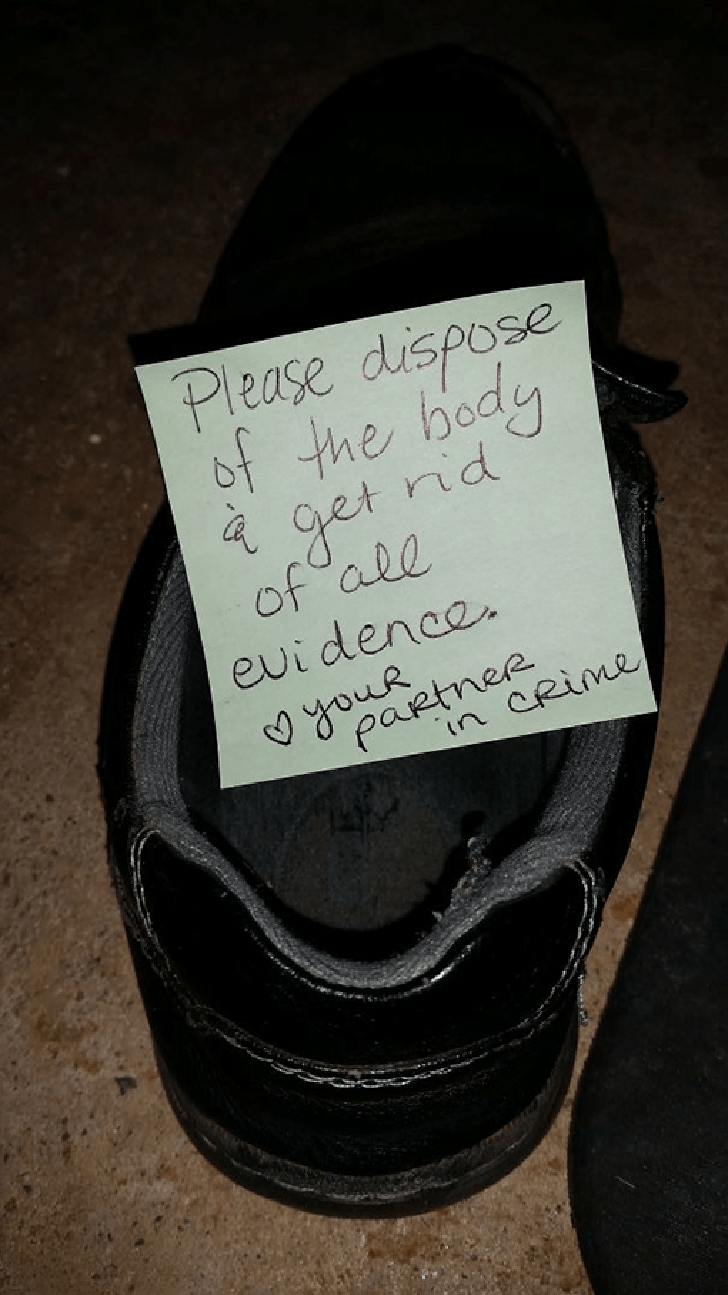 Please dispose
of the body
& get rid
of all
evidence.
♡ your
partner
in crime